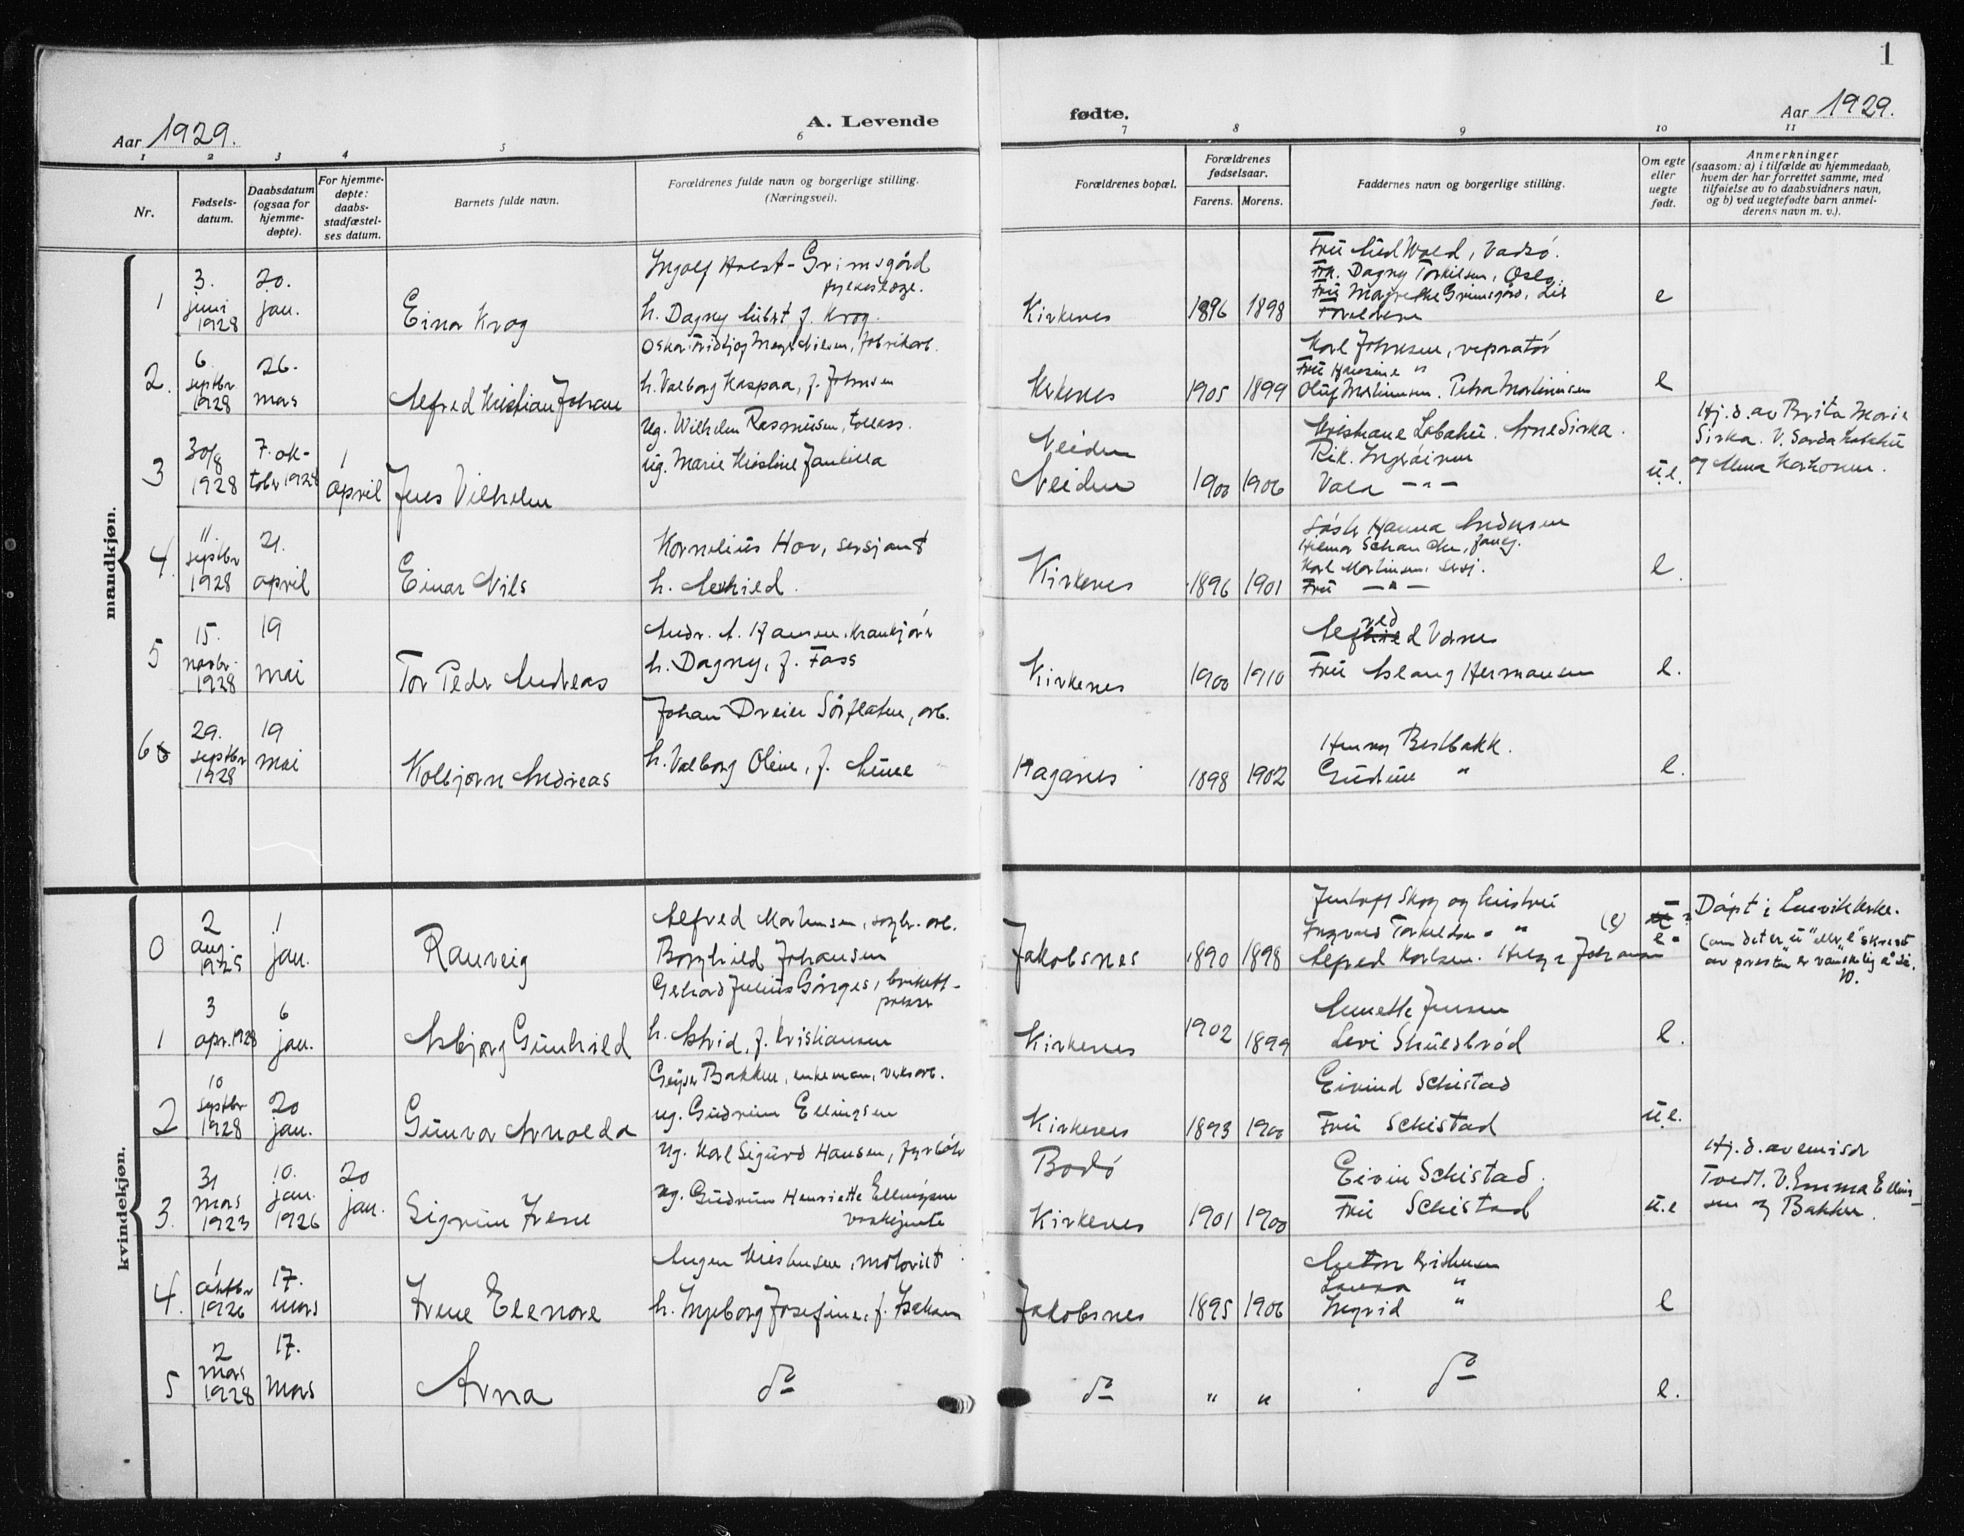 1
Aar 1929.
A. Levende
fødte.
Aar 1929.
1 2 3 4 5 6 7 8 9 10 11
Nr.
Fødsels-
datum.
Daabsdatum
(ogsaa for
hjemme-
døpte).
For hjemme-
døpte:
daabs-
stadfæstel-
ses datum.
Barnets fulde navn.
Forældrenes fulde navn og borgerlige stilling.
(Næringsvei).
Forældrenes bopæl.
Forældrenes
fødselsaar.
Farens. Morens.
Faddernes navn og borgerlige stilling.
Om egte
eller
uegte
født.
Anmerkninger
(saasom: a) i tilfælde av hjemmedaab,
hvem der har forrettet samme, med
tilføielse av to daabsvidners navn,
og b) ved uegtefødte barn anmel-
derens navn m. v.).
mandkjøn.
1
3.
juni
1928
20.
jan.
Einar Krog
Ingolf Holst-Grimsgård
fylkeslæge.
h. Dagny f. Krog.
Kirkenes
1896 1898
Fru Wold, Vadsø.
Frk. Dagny Torkilsen, Oslo
Fru Magrethe Grimsgård,
Foreldrene
e
2.
6.
septbr
1928
26.
mars
Alfred Kristian Johan
Oskar Fridtjof Nilsen, fabrikarb.
h. Valborg Kaspara, f. Johnsen
Kirkenes
1905 1899
Karl Johnsen, reparatør
Fru "
Oluf Martinussen. Petra Martinussen
e
3
30/8
1928
7. ok-
tober 1928
1
april
Jens Vilhelm
Ug. Wilhelm Rasmussen, tollass.
ug. Marie Kristine
Neiden
Neiden
1900 1906
Kristiane Labahu. Arne Sirka.
Rik. Ingrid
— " —
u.e.
Hj. d. av Brita Marie
Sirka. V. Sanda
og Alma
4.
11.
septbr
1928
21.
april
Einar Nils
Kornelius Hov, sersjant
h. Alvhild.
Kirkenes
1896 1901
Søstr Hanna Andersen
Hilmar
Karl Martinsen, sersj.
Fru — " —
e.
5
15.
novbr.
1928
19
mai
Tor Peder Andreas
Andr. A. Hansen, krankjører
h. Dagny, f. Foss
Kirkenes
1900 1910
Alfred
Fru Aslaug Hermansen
e.
6
29.
septbr
1928
19
mai
Kolbjørn Andreas
Johan Dreier Sørflaten, arb.
h. Valborg Oline, f.
Haganes
1898 1902
Henry Bestbakk.
Gudrun "
e.
kvindekjøn.
0
2
aug.
1925
1
jan.
Ranveig
Alfred Mortensen, arb.
Borghild Johansen
Jakobsnes
1890 1898
Jentoft Skog og hustru
Ingvald Torkildsen " "
Alfred Karlsen. Helga Johansen
(e)
e.
Døpt i kirke.
(om det er "u" eller "e" skrevet
av presten er vanskelig å si.
1
3
apr. 1928
6
jan.
Asbjørg Gunhild
Gerhard Julius Görges, brikett-
presser
h. Astrid, f. Kristiansen
Kirkenes
1902 1899
Annette Jensen
Levi Skuesbrød
e.
2
10
septbr
1928
20
jan.
Gunvor Arnolda
Bakken, enkeman, verksarb.
ug. Gudrun Ellingsen
Kirkenes
1893 1900
Eivind Schistad
Fru Schistad
u.e.
3.
31
mars
1923
10.
jan.
1926
20
jan.
Sigrun Irene
Ug. Karl Sigurd Hansen, fyrbøter
ug. Gudrun Henriette Ellingsen
vaskejente
Bodø
Kirkenes
1901 1900
Eivin Schistad.
Fru Schistad
u.e
Hj. d. av emisær
Tvedt. V. Emma Elling-
sen og Bakken.
4.
1
oktbr
1926
17.
mars
Irene Elenore
Kristensen, motorist
h. Ingeborg Josefine, f. Isaksen
Jakobsnes
1895 1906
Anton Kristensen
Laura "
Ingrid "
e
5
2
mars
1928
17.
mars
Arna
do
do
" "
do
e.